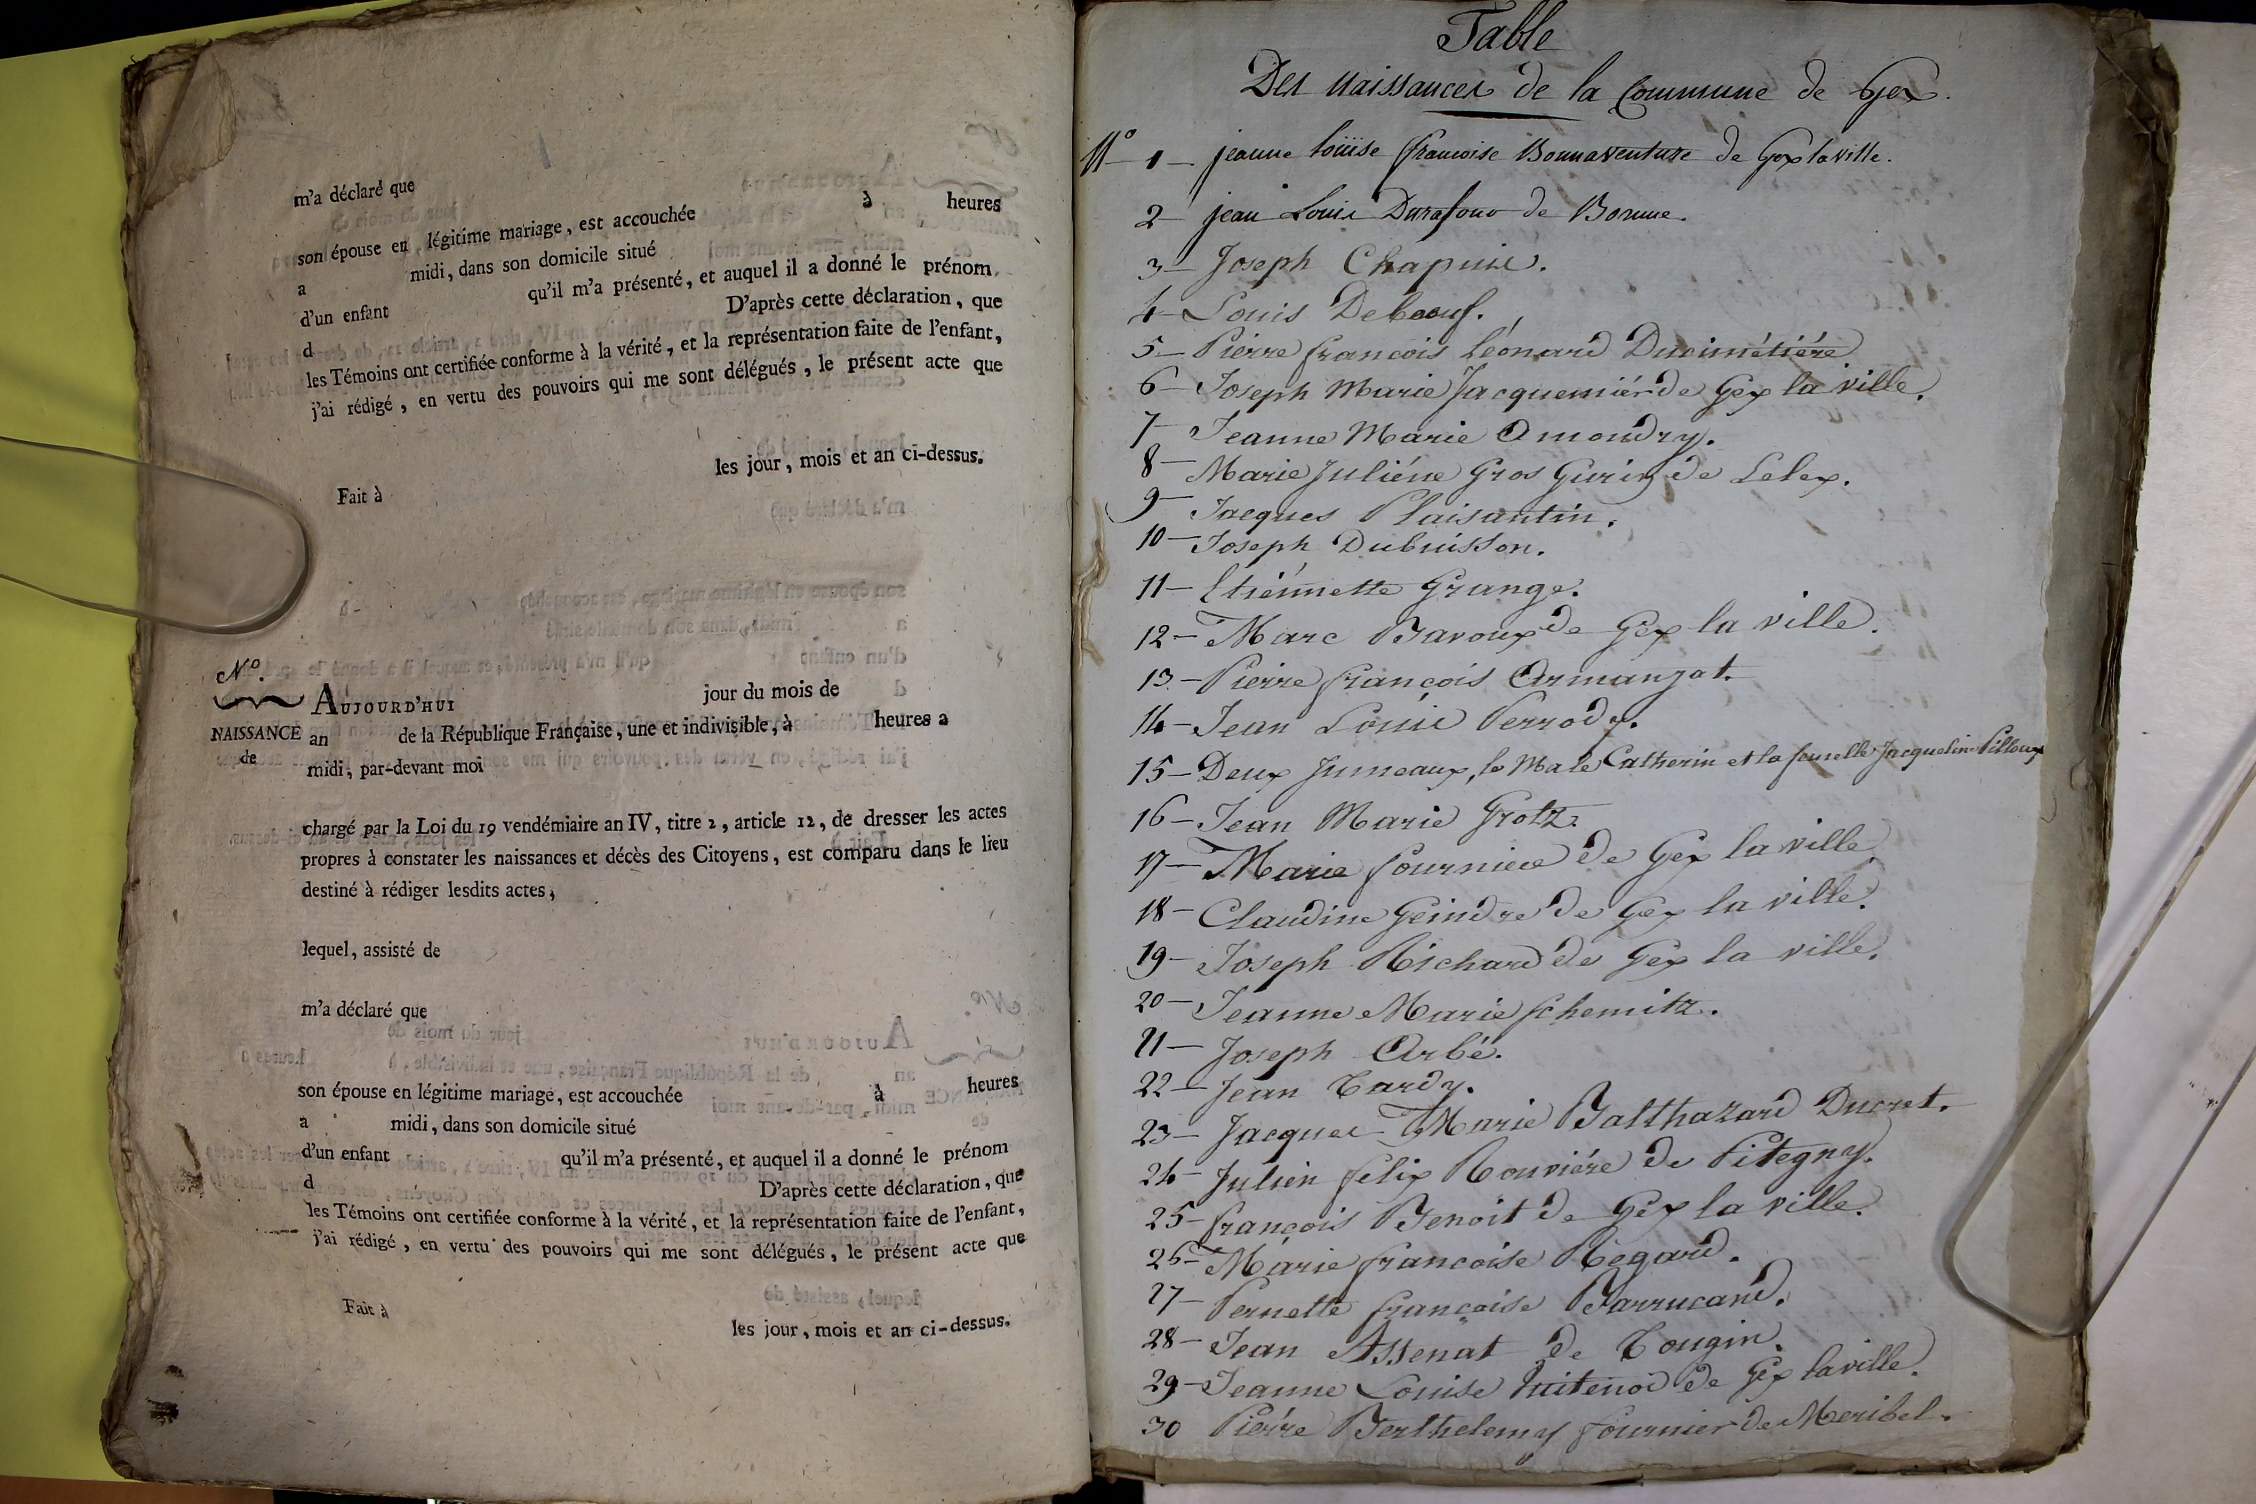 m'a déclaré que
son épouse en légitime mariage, est accouchée à heures
a midi, dans son domicile situé
d'un enfant qu'il m'a présenté, et auquel il a donné le prénom
d D'après cette déclaration, que
les Témoins ont certifiée conforme à la vérité, et la représentation faite de l'enfant,
j'ai rédigé, en vertu des pouvoirs qui me sont délégués, le présent acte que
les jour, mois et an ci-dessus.
Fait à
N.o
NAISSANCE
de
AUJOURD'HUI jour du mois de
an de la République Française, une et indivisible, à heures a
midi, par-devant moi
chargé par la Loi du 19 vendémiaire an IV, titre 2, article 12, de dresser les actes
propres à constater les naissances et décès des Citoyens, est comparu dans le lieu
destiné à rédiger lesdits actes,
lequel, assisté de
m'a déclaré que
son épouse en légitime mariage, est accouchée à heures
a midi, dans son domicile situé
d'un enfant qu'il m'a présenté, et auquel il a donné le prénom
d D'après cette déclaration, que
les Témoins ont certifiée conforme à la vérité, et la représentation faite de l'enfant,
j'ai rédigé, en vertu des pouvoirs qui me sont délégués, le présent acte que
Fait à
les jour, mois et an ci-dessus.
Table
Des Naissances de la Commune de Gex.
N° 1 — jeanne loüise francoise Bonnaventure de Gex la ville.
2 — jean Louis Durafour de Bonne.
3 — Joseph Chapuis.
4 — Louis Deboeuf.
5 — Pierre francois Léonard Ducimétiére
6 — Joseph Marie Jacquemiér de Gex la ville.
7 — Jeanne Marie Amoudry.
8 — Marie Juliéne Gros Gurin de Lelex.
9 — Jacques Plaisantin.
10 — Joseph Dubuisson.
11 — Etiénnette Grange.
12 — Marc Bavoux de Gex la ville.
13 — Pierre françois Armanjat.
14 — Jean Louis Perrody.
15 — Deux Jumeaux, le Male Catherin et la femelle Jacqueline Pilloux
16 — Jean Marie Grotz.
17 — Marie fourniere de Gex la ville
18 — Claudine Geindre de Gex la ville.
19 — Joseph Richard de Gex la ville.
20 — Jeanne Marie Schemitz.
21 — Joseph Arbé.
22 — Jean Tardy.
23 — Jacques Marie Balthazard Ducret.
24 — Julien felix Rouviére de Pitegny.
25 — françois Benoit de Gex la ville.
26 — Marie francoise Regard.
27 — Pernette françoise Barrucand.
28 — Jean Assenat de Tougin.
29 — Jeanne Louise de Gex la ville.
30 Piérre Berthelemy fournier de Meribel.